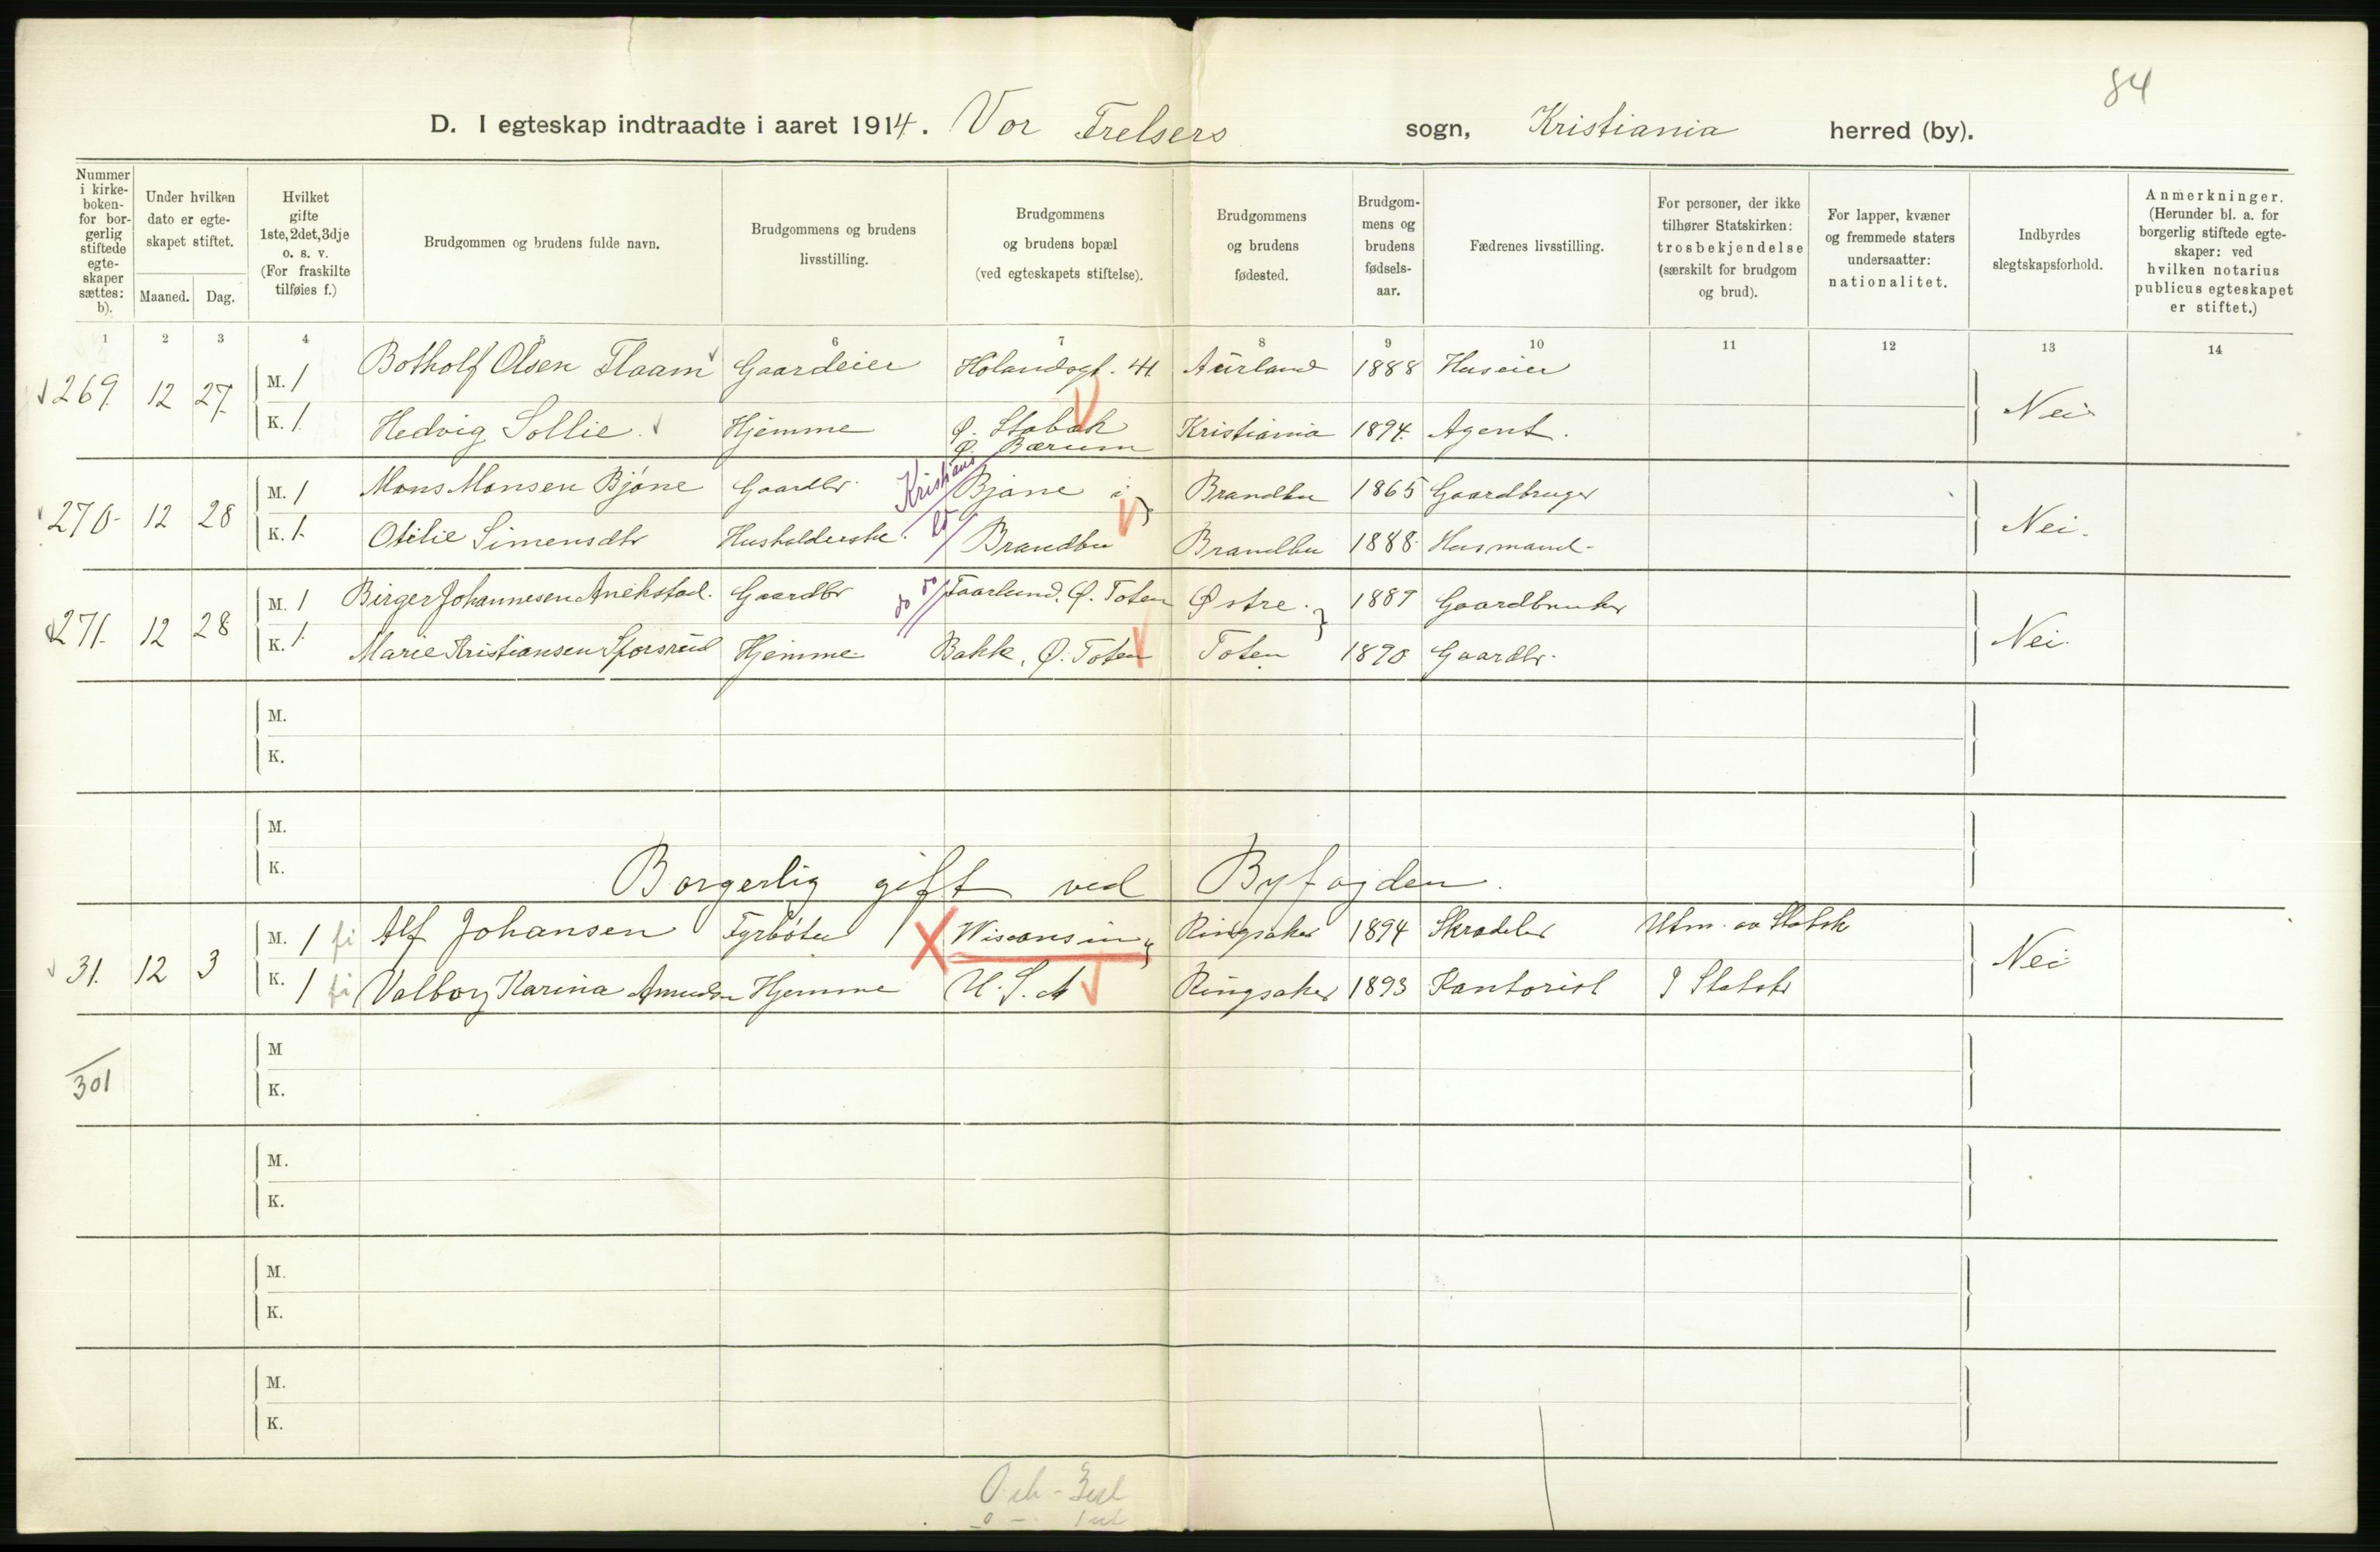 84
D. I egteskap indtraadte i aaret 1914. Vor Frelsers sogn, Kristiania herred (by).
Nummer i kirke- boken- for bor- gerlig stiftede egte- skaper sættes: b).
Under hvilken dato er egte- skapet stiftet.
Maaned. Dag.
Hvilket gifte 1ste, 2det, 3dje o. s. v. (For fraskilte tilføies f.)
Brudgommen og brudens fulde navn.
Brudgommens og brudens livsstilling.
Brudgommens og brudens bopæl (ved egteskapets stiftelse).
Brudgommens og brudens fødested.
Brudgom- mens og brudens fødsels- aar.
Fædrenes livsstilling.
For personer, der ikke tilhører Statskirken: trosbekjendelse (særskilt for brudgom og brud).
For lapper, kvæner og fremmede staters undersaatter: nationalitet.
Indbyrdes slegtskapsforhold.
Anmerkninger. (Herunder bl. a. for borgerlig stiftede egte- skaper: ved hvilken notarius publicus egteskapet er stiftet.)
1 2 3 4 5 6 7 8 9 10 11 12 13 14
269 12 27. M. 1 Botholf Olsen Flaam Gaardeier Holandsgt. 41 Aurland 1888 Huseier Nei
K. 1. Hedvig Sollie. Hjemme Ø. Stabæk Ø. Bærum Kristiania 1894. Agent.
270 12 28 M. 1 Mons Monsen Bjøne Gaardbr. Kristians Bjøne i Brandbu 1865 Gaardbruger Nei.
K. 1. Otilie Simensdtr Husholderske. do Brandbu Brandbu 1888 Husmand.
271. 12 28 M. 1 Birger Johannesen Anekstad. Gaardbr do do Faarlund. Ø. Toten Østre 1887 Gaardbruker Nei.
K. 1. Marie Kristiansen Sporsrud Hjemme Bakke, Ø. Toten Toten 1890 Gaardbr.
M.
K.
M.
K.
Borgerlig gift ved Byfogden.
31. 12 3 M. 1 fi Alf Johansen Fyrbøter Wisconsin Ringsaker 1894 Skrædder Utm. av Statsk Nei
K. 1 fi Valborg Karina Amundsn Hjemme U. S. A Ringsaker 1893 Kontorist I Statsk
M
301
K.
M.
K.
M.
K.
M.
K.